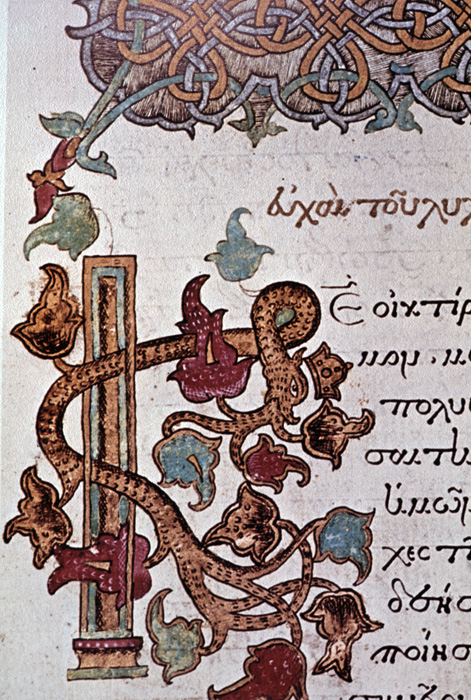 Εὐχαὶ τοῦ λυχ
ΚΕ οἰκτίρ
μον . κα
πολυ
σαι τὴ
ἡμῶν
χες τῆ
δεήσ
ποίησ